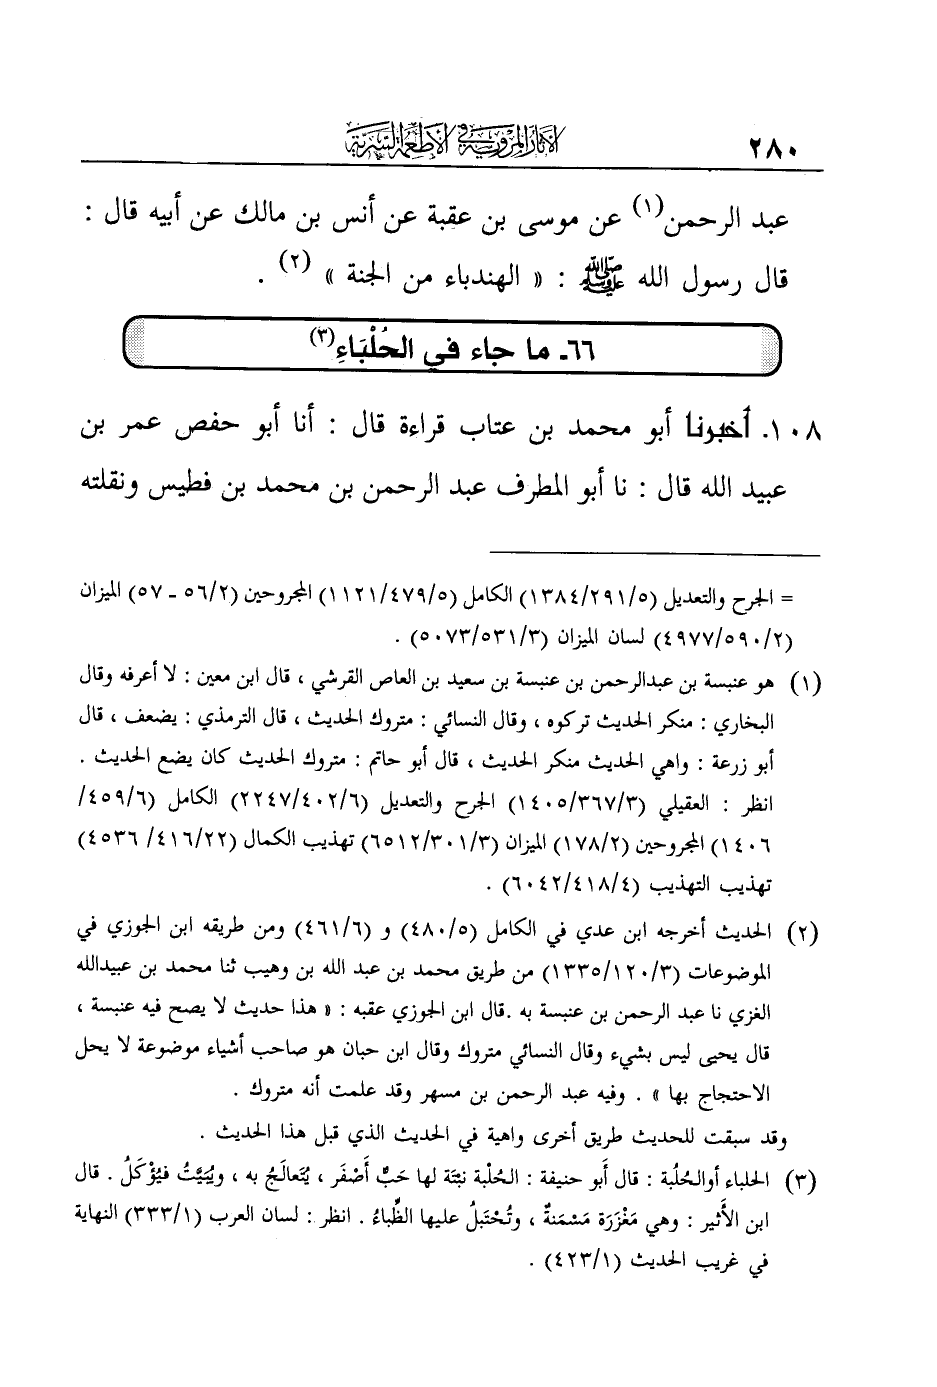 ٢٨٠
الآثار المروية في الأطعمة السرية
عبد الرحمن(١) عن موسى بن عقبة عن أنس بن مالك عن أبيه قال :
قال رسول الله ﷺ : « الهندباء من الجنة » (٢) .
٦٦ـ ما جاء في الحُلْبَاءِ(٣)
١٠٨. أخبرنا أبو محمد بن عتاب قراءة قال : أنا أبو حفص عمر بن
عبيد الله قال : نا أبو المطرف عبد الرحمن بن محمد بن فطيس ونقلته
= الجرح والتعديل (١٣٨٤/٢٩١/٥) الكامل (١١٢١/٤٧٩/٥) المجروحين (٥٦/٢ ـ ٥٧) الميزان
(٤٩٧٧/٥٩٠/٢) لسان الميزان (٥٠٧٣/٥٣١/٣) .
(١) هو عنبسة بن عبدالرحمن بن عنبسة بن سعيد بن العاص القرشي ، قال ابن معين : لا أعرفه وقال
البخاري : منكر الحديث تركوه ، وقال النسائي : متروك الحديث ، قال الترمذي : يضعف ، قال
أبو زرعة : واهي الحديث منكر الحديث ، قال أبو حاتم : متروك الحديث كان يضع الحديث .
انظر : العقيلي (١٤٠٥/٣٦٧/٣) الجرح والتعديل (٢٢٤٧/٤٠٢/٦) الكامل (٤٥٩/٦/
١٤٠٦) المجروحين (١٧٨/٢) الميزان (٦٥١٢/٣٠١/٣) تهذيب الكمال (٤٥٣٦ /٤١٦/٢٢)
تهذيب التهذيب (٦٠٤٢/٤١٨/٤) .
(٢) الحديث أخرجه ابن عدي في الكامل (٤٨٠/٥) و (٤٦١/٦) ومن طريقه ابن الجوزي في
الموضوعات (١٣٣٥/١٢٠/٣) من طريق محمد بن عبد الله بن وهيب ثنا محمد بن عبيدالله
الغزي نا عبد الرحمن بن عنبسة به .قال ابن الجوزي عقبه : « هذا حديث لا يصح فيه عنبسة ،
قال يحيى ليس بشيء وقال النسائي متروك وقال ابن حبان هو صاحب أشياء موضوعة لا يحل
الاحتجاج بها » . وفيه عبد الرحمن بن مسهر وقد علمت أنه متروك .
وقد سبقت للحديث طريق أخرى واهية في الحديث الذي قبل هذا الحديث .
(٣) الحلباء أوالحُلبة : قال أَبو حنيفة : الحُلْبة نبْتَة لها حَبٌّ أَصْفَر ، يُتَعالَجُ به ، ويُبَيَّتُ فيُؤْكَلُ . قال
ابن الأَثير : وهي مَغْزَرَة مَسْمَنةٌ ، وتُحْتَبلُ عليها الظِّباءُ . انظر : لسان العرب (٣٣٣/١) النهاية
في غريب الحديث (٤٢٣/١) .